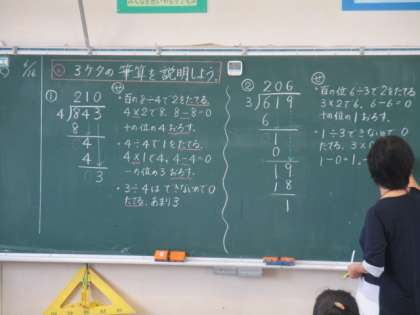 6/16
め 3ケタの筆算を説明しよう。
①
210
4)843
8
04
4
03
せ
・百の8÷4で2をたてる。
4×2で8、8-8=0
十の位の4おろす。
・4÷4で1をたてる。
4×1で4、4-4=0
一の位の3おろす。
・3÷4はできないので0
たてる。あまり3
②
206
3)619
6
1
0
19
18
1
せ
・百の位6÷3で2をたてる
3×2で6、6-6=0
十の1おろす。
・1÷3できないので
たてる、3×0
1-0=1、